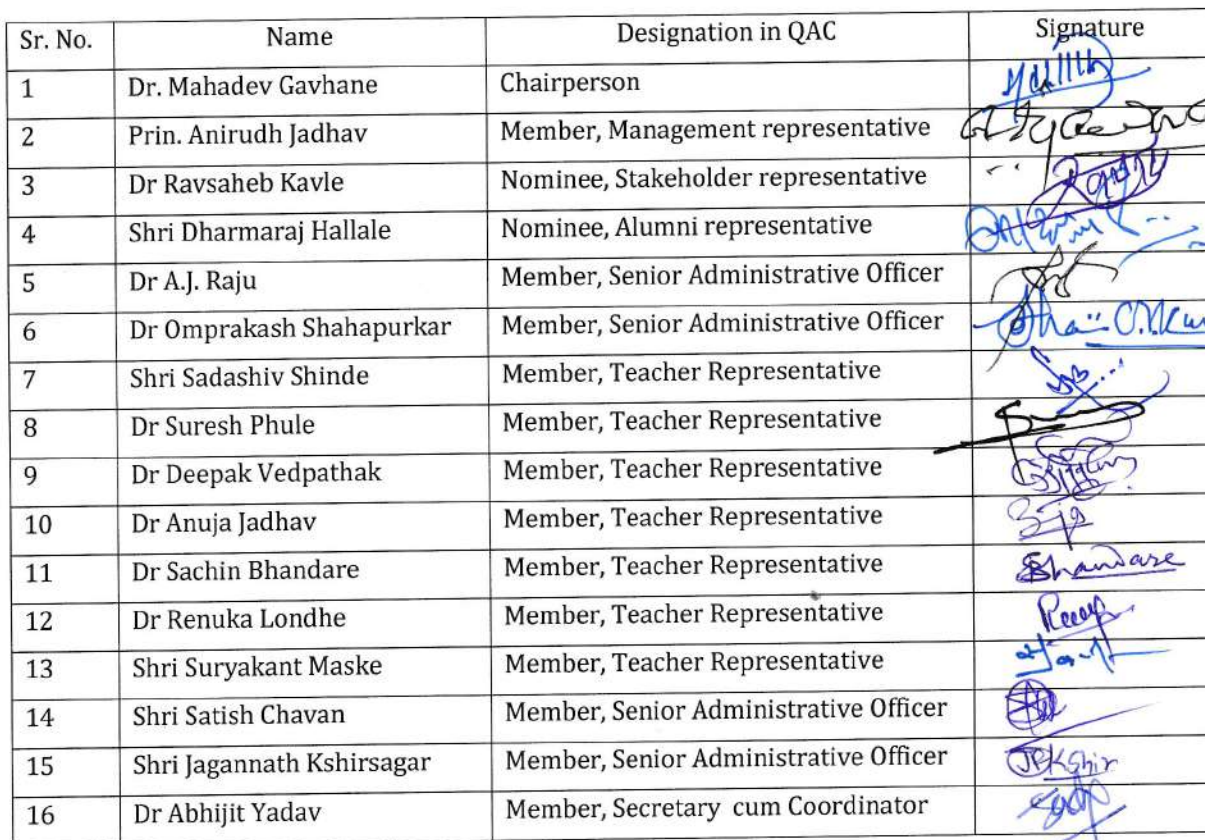 Sr. No. Name Designation in QAC Signature
1 Dr. Mahadev Gavhane Chairperson
2 Prin. Anirudh Jadhav Member, Management representative
3 Dr Ravsaheb Kavle Nominee, Stakeholder representative
4 Shri Dharmaraj Hallale Nominee, Alumni representative
5 Dr A.J. Raju Member, Senior Administrative Officer
6 Dr Omprakash Shahapurkar Member, Senior Administrative Officer
7 Shri Sadashiv Shinde Member, Teacher Representative
8 Dr Suresh Phule Member, Teacher Representative
9 Dr Deepak Vedpathak Member, Teacher Representative
10 Dr Anuja Jadhav Member, Teacher Representative
11 Dr Sachin Bhandare Member, Teacher Representative Bhandare
12 Dr Renuka Londhe Member, Teacher Representative
13 Shri Suryakant Maske Member, Teacher Representative
14 Shri Satish Chavan Member, Senior Administrative Officer
15 Shri Jagannath Kshirsagar Member, Senior Administrative Officer JPKshir
16 Dr Abhijit Yadav Member, Secretary cum Coordinator